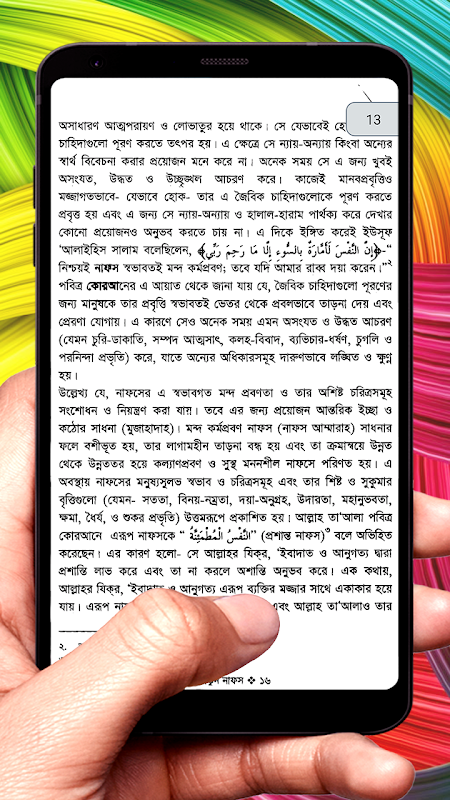 13
অসাধারণ আত্মপরায়ণ ও লোভাতুর হয়ে থাকে। সে যেভাবেই
চাহিদাগুলো পূরণ করতে তৎপর হয়। এ ক্ষেত্রে সে ন্যায়-অন্যায় কিংবা অন্যের
স্বার্থ বিবেচনা করার প্রয়োজন মনে করে না। অনেক সময় সে এ জন্য খুবই
অসংযত, উদ্ধত ও উচ্ছৃঙ্খল আচরণ করে। কাজেই মানবপ্রবৃত্তিও
মজ্জাগতভাবে- যেভাবে হোক- তার এ জৈবিক চাহিদাগুলোকে পূরণ করতে
প্রবৃত্ত হয় এবং এ জন্য সে ন্যায়-অন্যায় ও হালাল-হারাম পার্থক্য করে দেখার
কোনো প্রয়োজনও অনুভব করতে চায় না। এ দিকে ইঙ্গিত করেই ইউসূফ
'আলাইহিস সালাম বলেছিলেন, ﴿إِنَّ النَّفْسَ لَأَمَّارَةٌ بِالسُّوءِ إِلَّا مَا رَحِمَ رَبِّي﴾-“
নিশ্চয়ই নাফস স্বভাবতই মন্দ কর্মপ্রবণ; তবে যদি আমার রাব্ব দয়া করেন।”২
পবিত্র কোরআনের এ আয়াত থেকে জানা যায় যে, জৈবিক চাহিদাগুলো পূরণের
জন্য মানুষকে তার প্রবৃত্তি স্বভাবতই ভেতর থেকে প্রবলভাবে তাড়না দেয় এবং
প্রেরণা যোগায়। এ কারণে সেও অনেক সময় এমন অসংযত ও উদ্ধত আচরণ
(যেমন চুরি-ডাকাতি, সম্পদ আত্মসাৎ, কলহ-বিবাদ, ব্যভিচার-ধর্ষণ, চুগলি ও
পরনিন্দা প্রভৃতি) করে, যাতে অন্যের অধিকারসমূহ দারুণভাবে লঙ্ঘিত ও ক্ষুণ্ন
হয়।
উল্লেখ্য যে, নাফসের এ স্বভাবগত মন্দ প্রবণতা ও তার অশিষ্ট চরিত্রসমূহ
সংশোধন ও নিয়ন্ত্রণ করা যায়। তবে এর জন্য প্রয়োজন আন্তরিক ইচ্ছা ও
কঠোর সাধনা (মুজাহাদাহ)। মন্দ কর্মপ্রবণ নাফস (নাফস আম্মারাহ) সাধনার
ফলে বশীভূত হয়, তার লাগামহীন তাড়না বন্ধ হয় এবং তা ক্রমান্বয়ে উন্নত
থেকে উন্নততর হয়ে কল্যাণপ্রবণ ও সুস্থ মননশীল নাফসে পরিণত হয়। এ
অবস্থায় নাফসের মনুষ্যসুলভ স্বভাব ও চরিত্রসমূহ এবং তার শিষ্ট ও সুকুমার
বৃত্তিগুলো (যেমন- সততা, বিনয়-নম্রতা, দয়া-অনুগ্রহ, উদারতা, মহানুভবতা,
ক্ষমা, ধৈর্য, ও শুকর প্রভৃতি) উত্তমরূপে প্রকাশিত হয়। আল্লাহ তা'আলা পবিত্র
কোরআনে এরূপ নাফসকে “ النَّفْسُ الْمُطْمَئِنَّةُ” (প্রশান্ত নাফস)৩ বলে অভিহিত
করেছেন। এর কারণ হলো- সে আল্লাহর যিক্‌র, 'ইবাদাত ও আনুগত্য দ্বারা
প্রশান্তি লাভ করে এবং তা না করলে অশান্তি অনুভব করে। এক কথায়,
আল্লাহর যিক্‌র, 'ইবাদাত ও আনুগত্য এরূপ ব্যক্তির মজ্জার সাথে একাকার হয়ে
যায়। এরূপ এবং আল্লাহ তা'আলাও তার
২.
নাফস ❖ ১৬